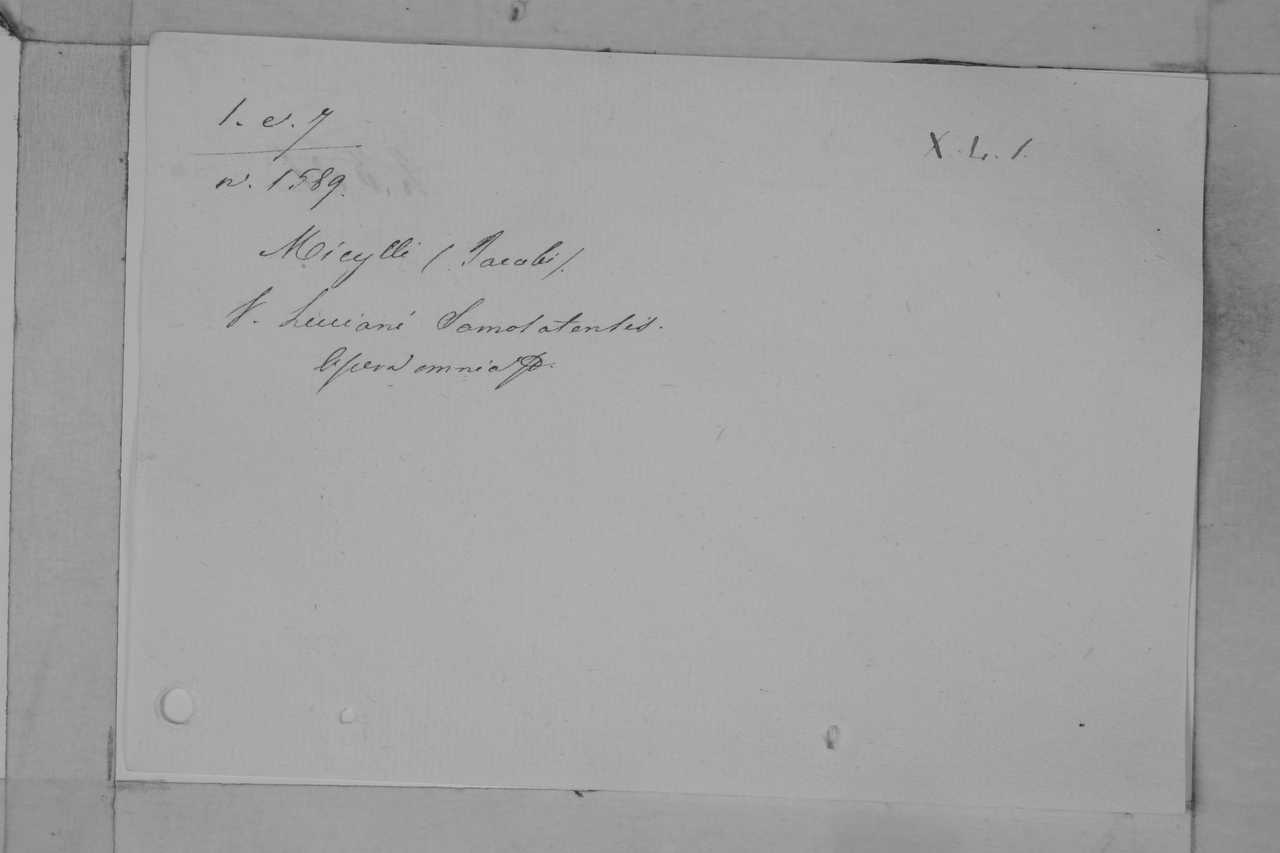 1. e. 7
X. L. 1.
n. 1589.
Micylli (Jacobi).
V. Luciani Samosatensis.
Opera omnia